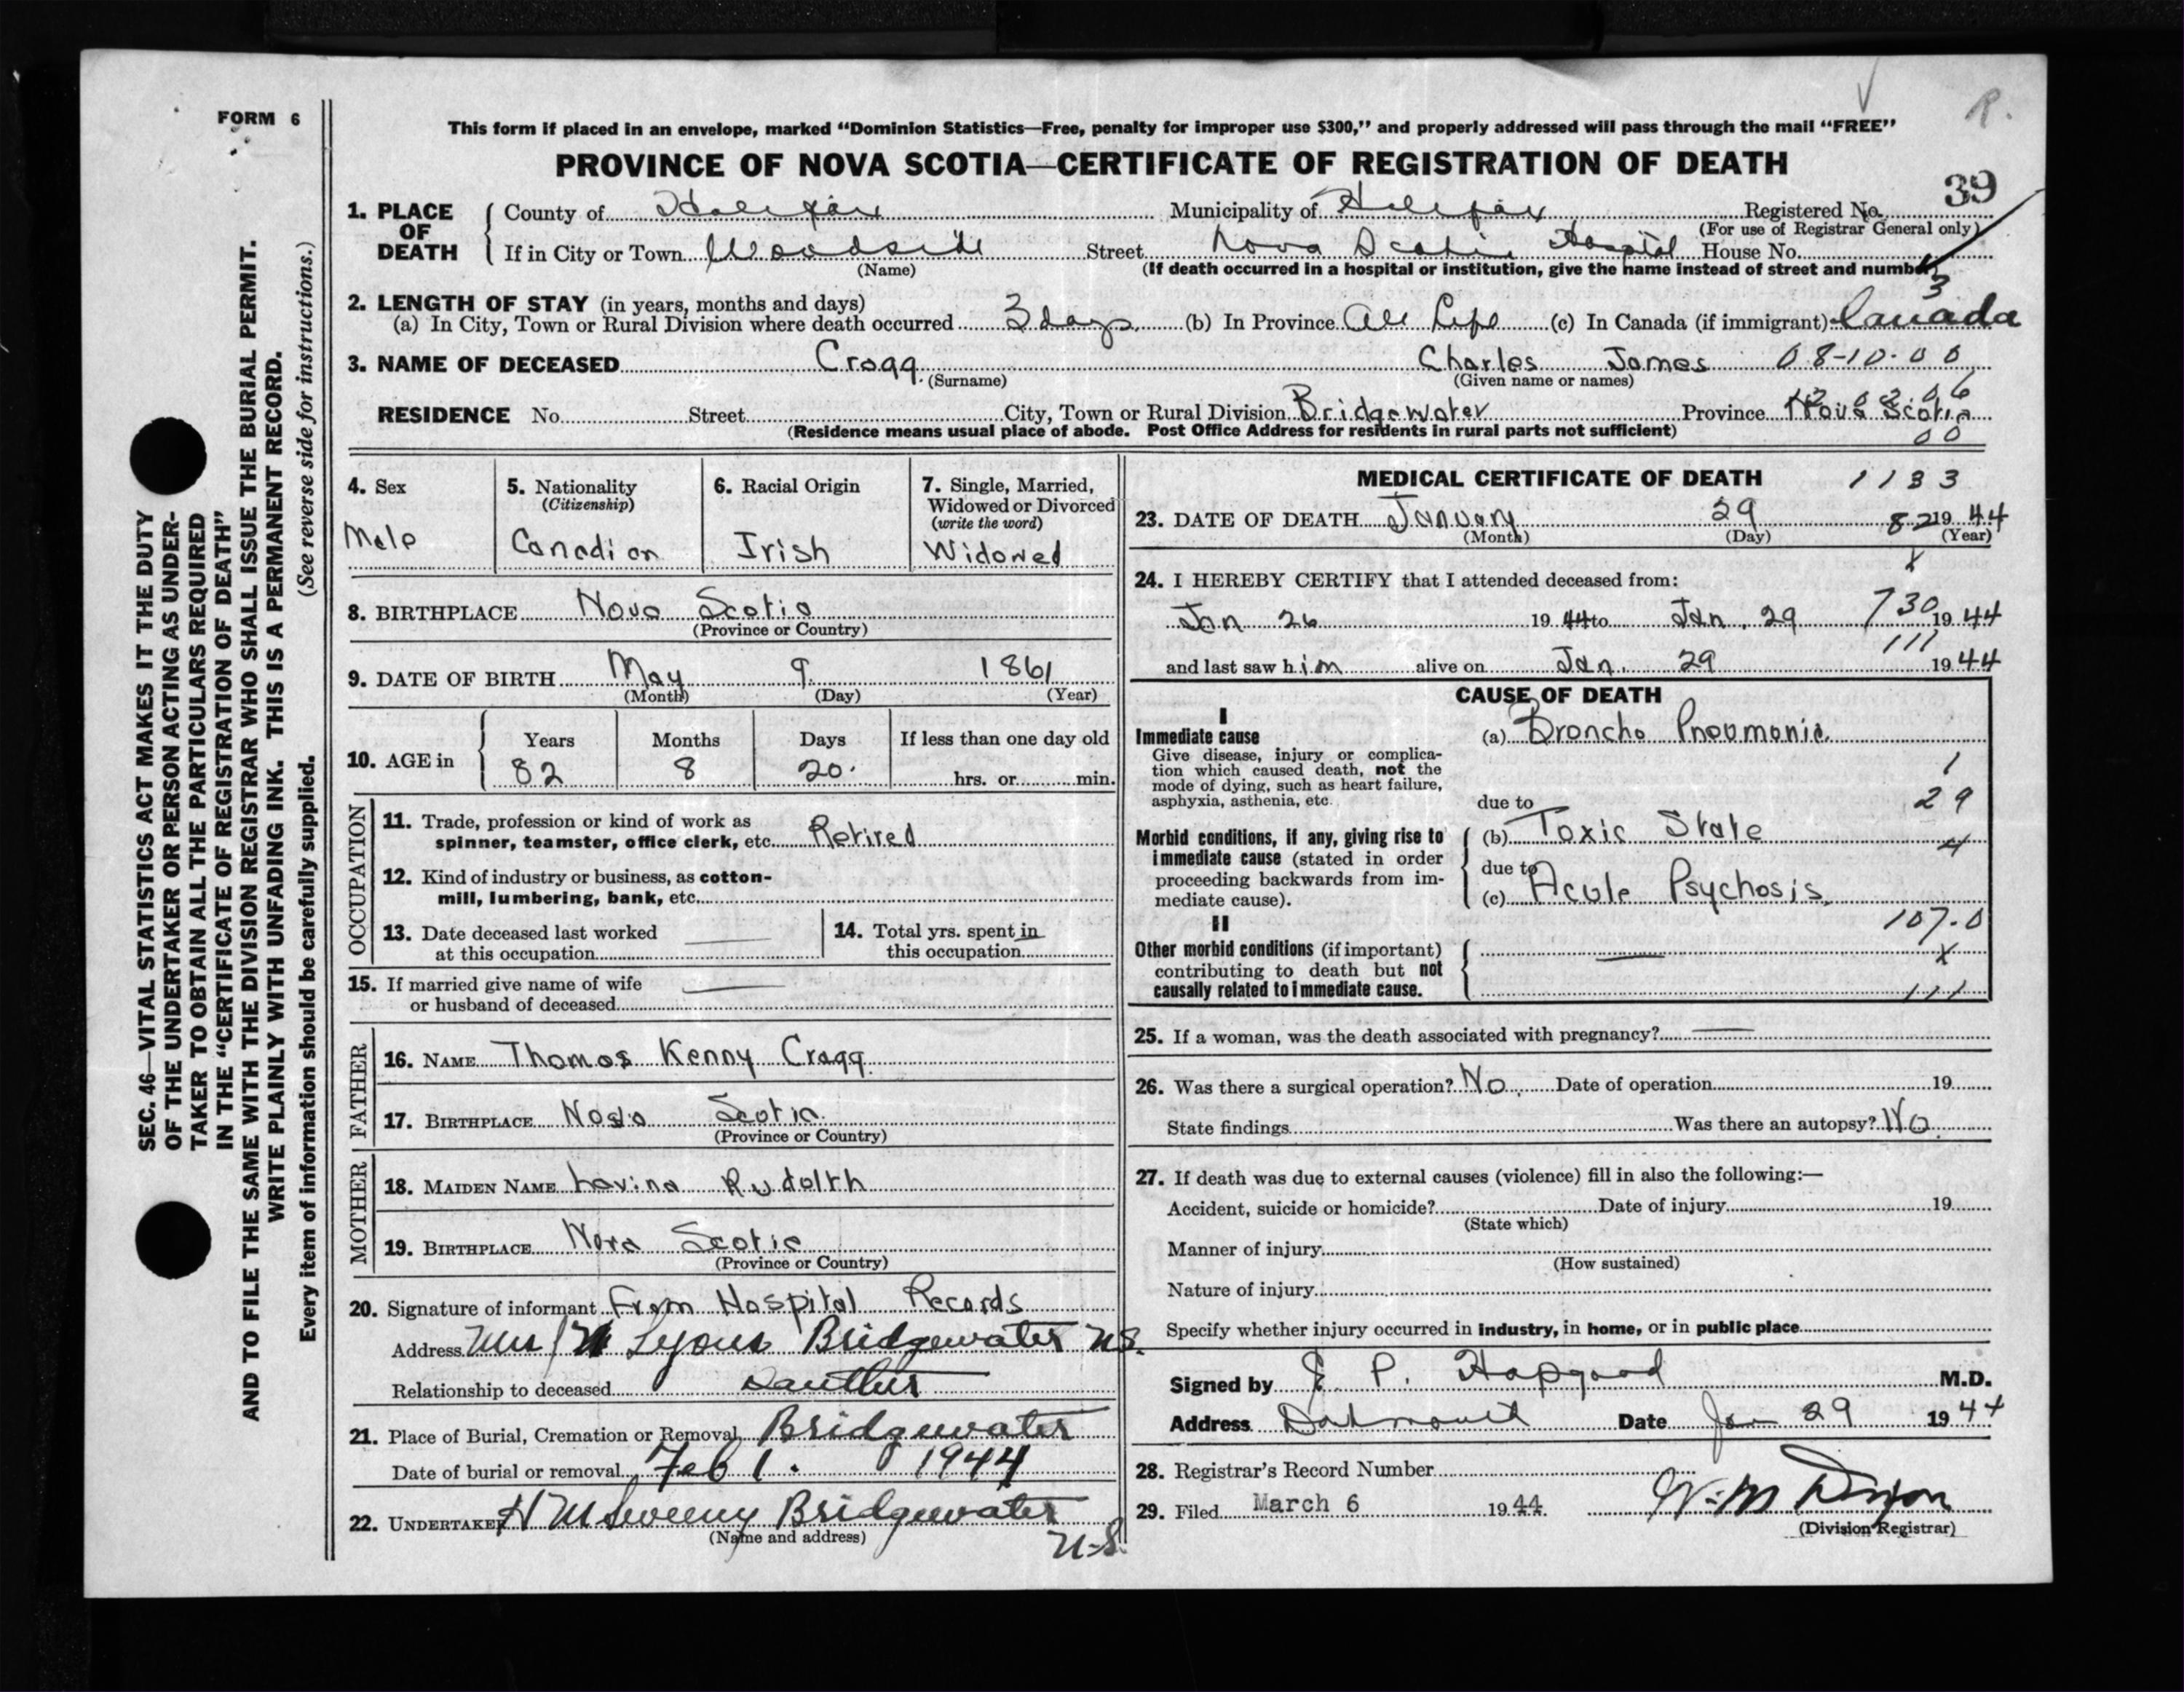 FORM 6
R.
This form if placed in an envelope, marked “Dominion Statistics—Free, penalty for improper use $300,” and properly addressed will pass through the mail “FREE”
PROVINCE OF NOVA SCOTIA—CERTIFICATE OF REGISTRATION OF DEATH
39
1. PLACE OF DEATH
County of Halifax Municipality of Halifax Registered No.
(For use of Registrar General only)
If in City or Town Woodside Street Nova Scotia Hospital House No.
(Name) (If death occurred in a hospital or institution, give the name instead of street and number)
3
2. LENGTH OF STAY (in years, months and days)
(a) In City, Town or Rural Division where death occurred 3 days (b) In Province All Life (c) In Canada (if immigrant) Canada
3. NAME OF DECEASED Cragg Charles James 08-10-00
(Surname) (Given name or names)
RESIDENCE No. Street City, Town or Rural Division Bridgewater Province Nova Scotia
(Residence means usual place of abode. Post Office Address for residents in rural parts not sufficient)
00
4. Sex Male
5. Nationality (Citizenship) Canadian
6. Racial Origin Irish
7. Single, Married, Widowed or Divorced (write the word) Widowed
8. BIRTHPLACE Nova Scotia
(Province or Country)
9. DATE OF BIRTH May 9 1861
(Month) (Day) (Year)
10. AGE in Years Months Days If less than one day old
82 8 20 hrs. or min.
OCCUPATION
11. Trade, profession or kind of work as
spinner, teamster, office clerk, etc. Retired
12. Kind of industry or business, as cotton-
mill, lumbering, bank, etc.
13. Date deceased last worked
at this occupation
14. Total yrs. spent in
this occupation
15. If married give name of wife
or husband of deceased
FATHER
16. NAME Thomas Kenny Cragg
17. BIRTHPLACE Nova Scotia
(Province or Country)
MOTHER
18. MAIDEN NAME Lavina Rudolth
19. BIRTHPLACE Nova Scotia
(Province or Country)
20. Signature of informant From Hospital Records
Address Mrs Lyons Bridgewater N.S.
Relationship to deceased
21. Place of Burial, Cremation or Removal Bridgewater
Date of burial or removal Feb 1. 1944
22. UNDERTAKER H M Sweeny Bridgewater
(Name and address)
N-S.
MEDICAL CERTIFICATE OF DEATH 1133
23. DATE OF DEATH January 29 82 1944
(Month) (Day) (Year)
X
24. I HEREBY CERTIFY that I attended deceased from:
Jan 26 1944 to Jan. 29 730 1944
111
and last saw him alive on Jan. 29 1944
CAUSE OF DEATH
I
Immediate cause (a) Broncho Pneumonia
Give disease, injury or complica-
tion which caused death, not the
mode of dying, such as heart failure,
asphyxia, asthenia, etc.
1
29
4
due to
Morbid conditions, if any, giving rise to
immediate cause (stated in order
proceeding backwards from im-
mediate cause).
(b) Toxic State
due to
(c) Acute Psychosis.
107.0
X
111
II
Other morbid conditions (if important)
contributing to death but not
causally related to immediate cause.
25. If a woman, was the death associated with pregnancy?
26. Was there a surgical operation? No. Date of operation 19
State findings Was there an autopsy? No.
27. If death was due to external causes (violence) fill in also the following:—
Accident, suicide or homicide? Date of injury 19
(State which)
Manner of injury
(How sustained)
Nature of injury
Specify whether injury occurred in industry, in home, or in public place
Signed by E. P. Hapgood M.D.
Address Dartmouth Date Jan 29 1944
28. Registrar's Record Number
29. Filed March 6 1944. W. M Dixon
(Division Registrar)
SEC. 46—VITAL STATISTICS ACT MAKES IT THE DUTY
OF THE UNDERTAKER OR PERSON ACTING AS UNDER-
TAKER TO OBTAIN ALL THE PARTICULARS REQUIRED
IN THE “CERTIFICATE OF REGISTRATION OF DEATH”
AND TO FILE THE SAME WITH THE DIVISION REGISTRAR WHO SHALL ISSUE THE BURIAL PERMIT.
WRITE PLAINLY WITH UNFADING INK. THIS IS A PERMANENT RECORD.
Every item of information should be carefully supplied. (See reverse side for instructions.)